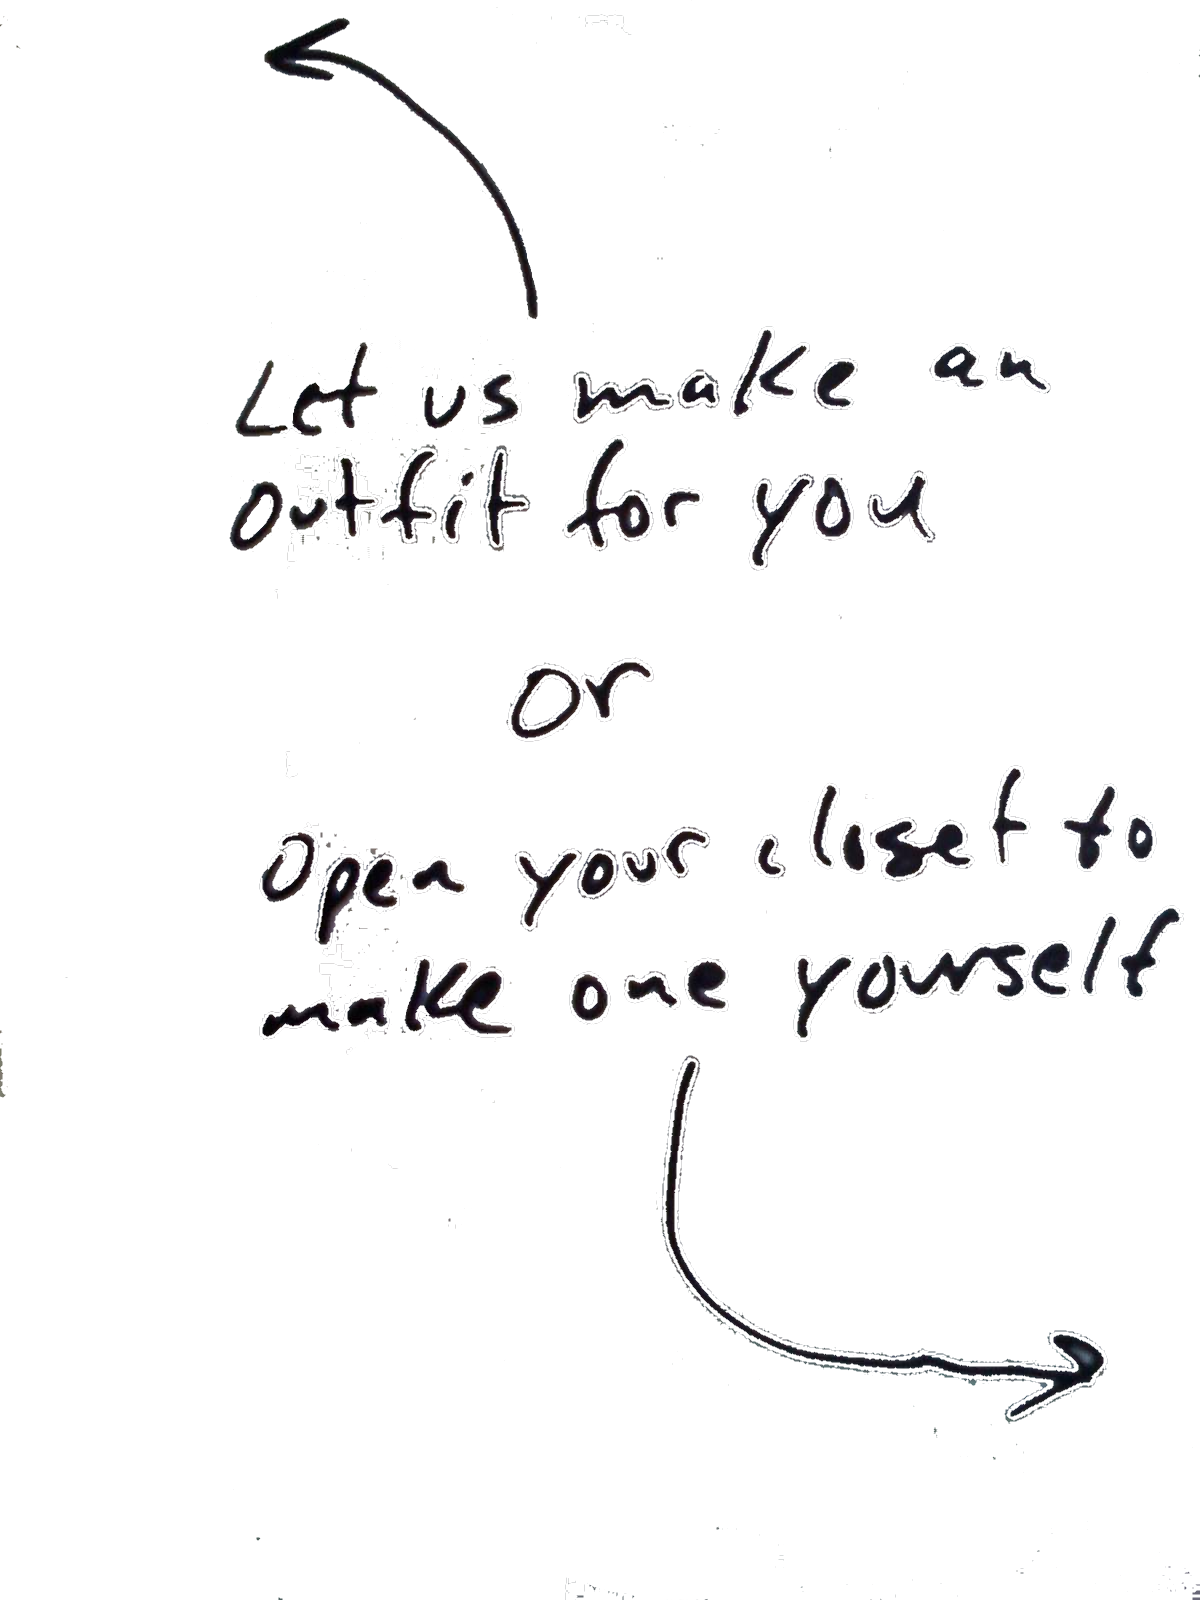 Let us make an
outfit for you
or
Open your closet to
make one yourself